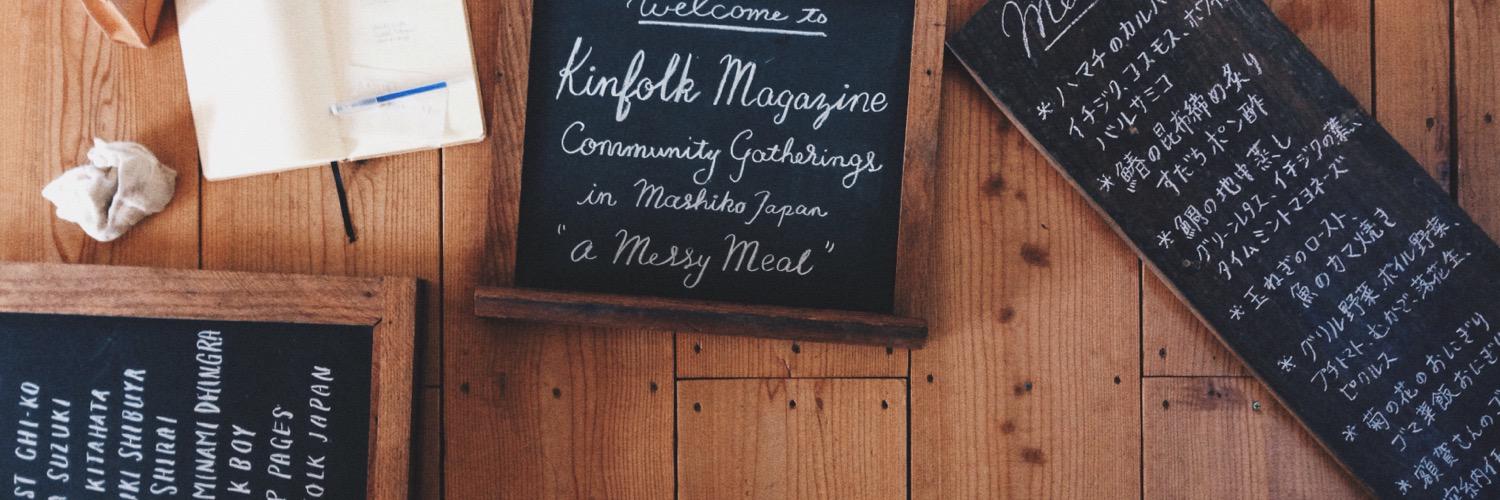 Welcome to
Kinfolk Magazine
Community Gatherings
in Mashiko Japan
"a Messy Meal"
ST CHI-KO
SUZUKI
KITAHATA
UKI SHIBUYA
SHIRAI
MINAMI DHINGRA
K BOY
P PAGES
OLK JAPAN
Me
* ハマチのカルパ
イチジク、コスモス、ホワイ
バルサミコ
* 鰆の昆布締め炙り
すだちポン酢
* 鯛の地中蒸し
グリーンレタス、イチジクの葉、
タイムミントマヨネーズ
* 玉ねぎのロースト、
魚のカマ焼き
* グリル野菜、ボイル野菜、
プチトマト、むかご、落花生、
ピクルス
* 菊の花のおにぎり
ゴマ葉飯おにぎり
* 額賀さんの